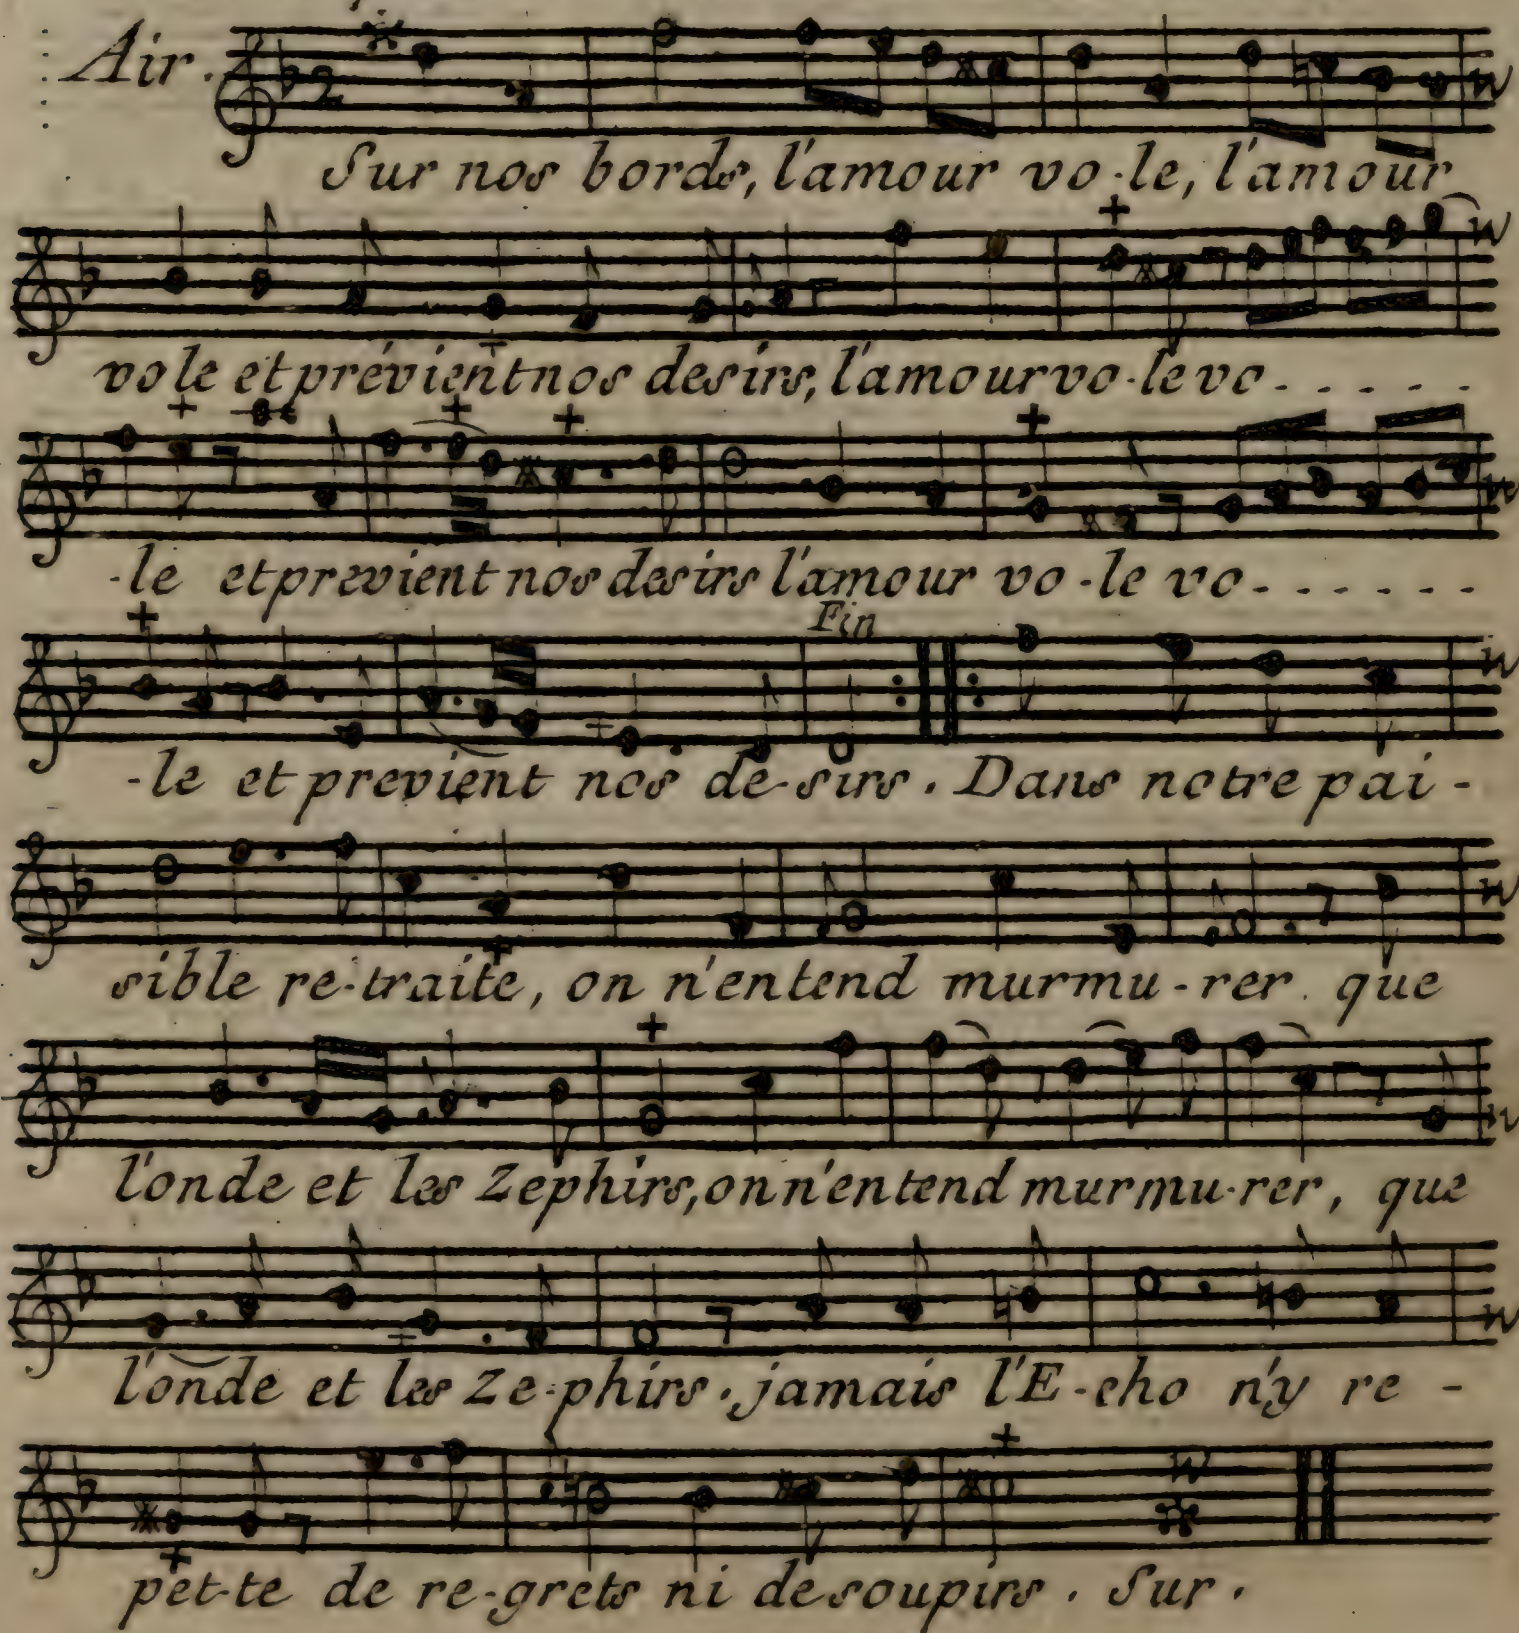 Air.
Sur nos bords, l'amour vo-le, l'amour
vole et prévient nos desirs, l'amour vo-le vo- - - - - -
-le et previent nos desirs l'amour vo-le vo- - - - - - -
Fin
-le et previent nos de-sirs. Dans notre pai-
sible re-traite, on n'entend murmu-rer que
l'onde et les Zephirs, on n'entend murmu-rer, que
l'onde et les Ze-phirs. jamais l'E-cho n'y re-
pet-te de re-grets ni de soupirs. Sur.